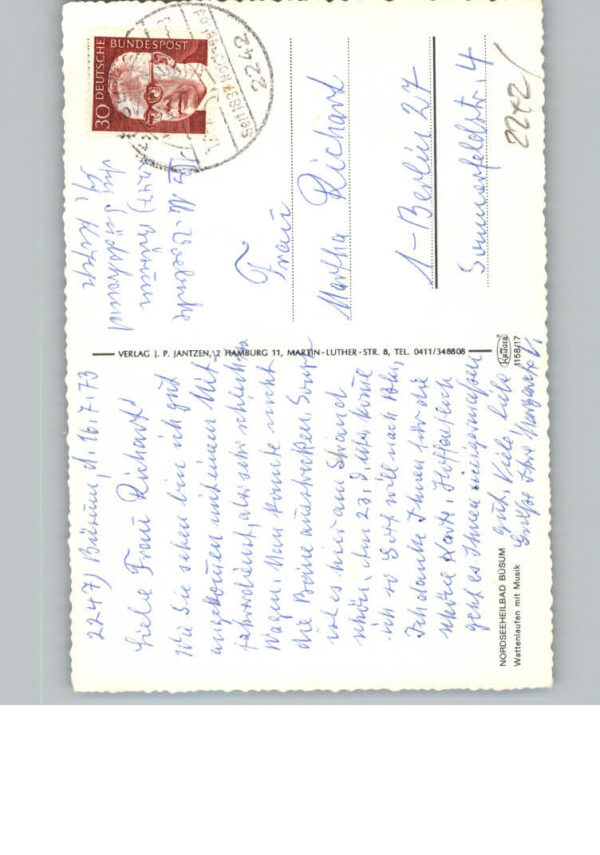 2247) Büsum, d. 16.7.73
Liebe Frau Richart!
Wie Sie sehen bin ich gut
angekommen mit einem Mit-
fahrerdienst, also sehr schlechten
Wagen. Man konnte nicht
die Beine ausstrecken. Sonst
ist es hier am Strand
schön. Am 23. d. Mts. komme
ich so Gott will nach Bln.
Ich danke Ihnen für die
schöne Karte. Hoffentlich
geht es Ihnen einigermaßen
gut. Viele liebe
Grüße Ihre
NORDSEEHEILBAD BÜSUM
Wattenlaufen mit Musik
VERLAG J. P. JANTZEN, 2 HAMBURG 11, MARTIN-LUTHER-STR. 8, TEL. 0411/348808
KRÜGER
1158/17
30 DEUTSCHE BUNDESPOST
2242
2247) Büsum
Frau
Martha Richart
1-Berlin 27
Sommerfeldstr. 4
2242/